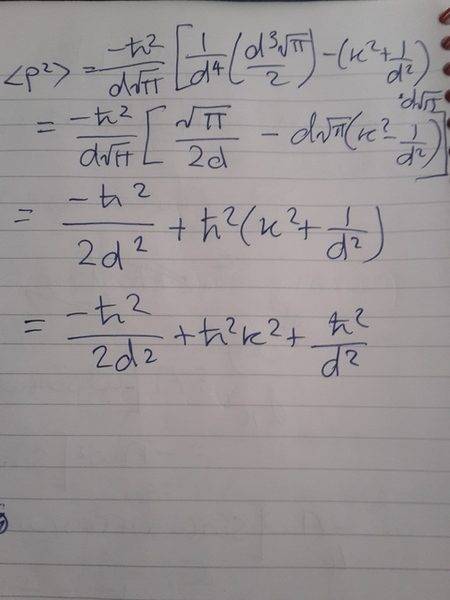 <p²> = -ħ²/d√π [1/d⁴ (d³√π/2) - (κ² + 1/d²) · d√π]
= -ħ²/d√π [√π/2d - d√π(κ² - 1/d²)]
= -ħ²/2d² + ħ²(κ² + 1/d²)
= -ħ²/2d² + ħ²κ² + ħ²/d²